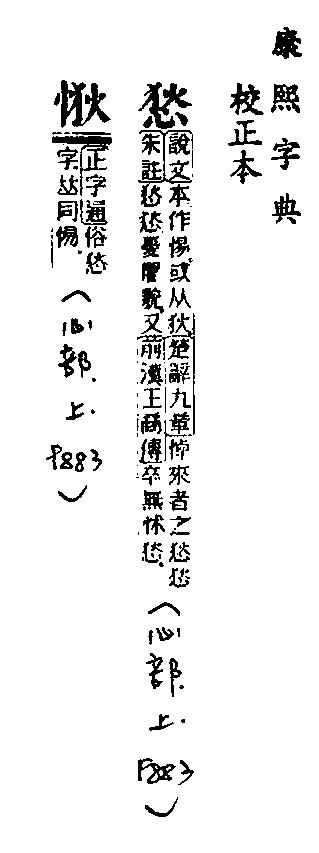 康熙字典
校正本
悐
說文本作惕或从狄楚辭九章悼來者之悐悐
朱註悐悐憂懼貌又前漢王商傳卒無怵悐
(心部.上.P883)
悇
正字通俗悐
字𠀤同惕
(心部.上.P883)